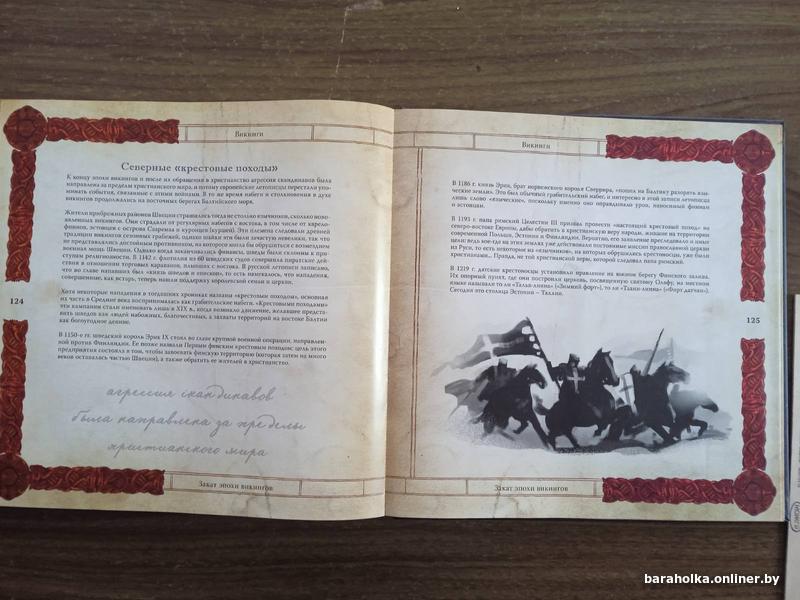 Викинги
Северные «крестовые походы»
К концу эпохи викингов и после их обращения в христианство агрессия скандинавов была
направлена за пределы христианского мира, и потому европейские летописцы перестали упо-
минать события, связанные с этими войнами. В то же время набеги и столкновения в духе
викингов продолжались на восточных берегах Балтийского моря.
Жители прибрежных районов Швеции страшились тогда не столько язычников, сколько ново-
явленных викингов. Они страдали от регулярных набегов с востока, в том числе от карело-
финнов, эстонцев с острова Сааремаа и куронцев (куршей). Эти племена следовали древней
традиции викингов сезонных грабежей, однако шайки эти были зачастую невелики, так что
не представлялись достойным противником, на которого могла бы обрушиться с возмездием
военная мощь Швеции. Однако когда заканчивались финансы, шведы были склонны к пре-
ступам религиозности. В 1142 г. флотилия из 60 шведских судов совершила пиратские дей-
ствия в отношении торговых караванов, плывших с востока. В русской летописи записано,
что во главе напавших был «князь шведов и епископ», то есть имелось, что нападения,
совершенные, как встарь, теперь нашли поддержку королевской семьи и церкви.
Хотя некоторые нападения в тогдашних хрониках названы «крестовым походом», основная
их часть в Средние века воспринималась как грабительские набеги. «Крестовыми походами»
эти кампании стали именовать лишь в XIX в., когда возникло движение, желавшее предста-
вить шведов как людей набожных, благочестивых, а захваты территорий на востоке Балтии
как богоугодное деяние.
124
В 1150-е гг. шведский король Эрик IX стоял во главе крупной военной операции, направлен-
ной против Финляндии. Ее позже назвали Первым финским крестовым походом: цель этого
предприятия состояла в том, чтобы завоевать финскую территорию (которая затем на много
веков оставалась частью Швеции), а также обратить ее жителей в христианство.
агрессия скандинавов
была направлена за пределы
христианского мира
Закат эпохи викингов
Викинги
В 1186 г. князь Эрик, брат норвежского короля Сверрира, «пошел на Балтику разорять язы-
ческие земли». Это был обычный грабительский набег, и интересно в этой записи летописца
лишь слово «языческие», поскольку именно оно оправдывало урон, нанесенный финнам
и эстонцам.
В 1193 г. папа римский Целестин III призвал провести «настоящий крестовый поход» на
северо-востоке Европы, дабы обратить в христианскую веру народы, жившие на территории
современной Польши, Эстонии и Финляндии. Вероятно, его заявление преследовало и иные
цели: ведь кое-где на этих землях уже действовали постоянные миссии православной церкви
из Руси, то есть некоторые из «язычников», на которых обрушились крестоносцы, уже были
христианами.. Правда, не той христианской веры, которой следовал папа римский.
В 1219 г. датские крестоносцы установили правление на южном берегу Финского залива.
Их опорный пункт, где они построили церковь, посвященную святому Олафу, на местном
языке называли то ли «Талья-линна» («Зимний форт»), то ли «Таани-линна» («Форт датчан»).
Сегодня это столица Эстонии – Таллин.
125
Закат эпохи викингов
baraholka.onliner.by